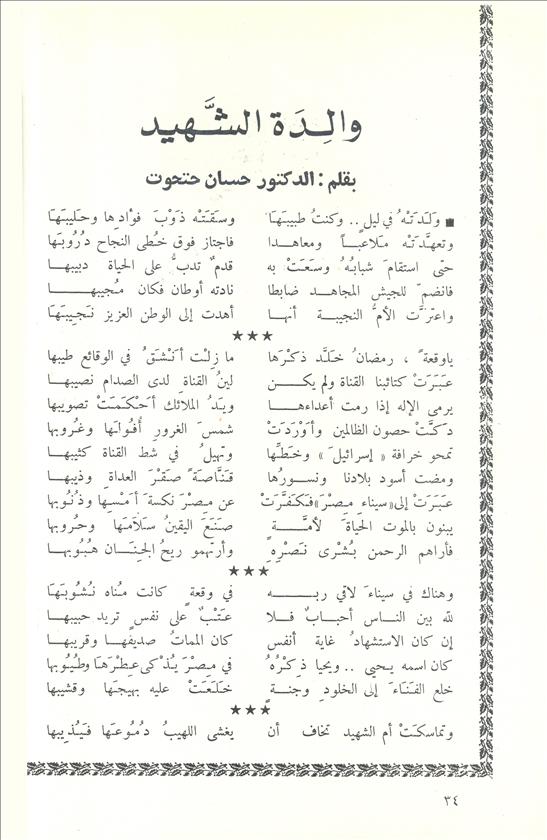 والِدَة الشَّهيد
بقلم : الدكتور حسان حتحوت
■ وَلَدَتْهُ في ليلٍ .. وكنتُ طبيبَهَا وسَقَتْه ذَوْبَ فؤادِها وحَليبَهَا
وتعهَّدَتْه مَلاعباً ومعاهدا فاجتاز فوق خُطى النجاح دُرُوبَهَا
حتّى استقامَ شبابُهُ وسَعَتْ به قدمٌ تدبُّ على الحياة دبيبهـا
فانضمّ للجيش المجاهد ضابطا نادته أوطان فكان مُجيبهـا
واعتزَّت الأمُّ النجيبة أنهـا أهدت إلى الوطن العزيز نَجِيبَهَا
★★★
ياوقعةً ، رمضانُ خلَّد ذكْرَها ما زلْت أنْشَقُ في الوقائع طيبها
عَبَرَتْ كتائبنا القناة ولم يكـن لينُ القناةِ لدى الصدام نصيبهـا
يرمى الإله إذا رمت أعداءهـا ويَدُ الملائك أحْكَمَتْ تصويبها
دَكَّتْ حصون الظالمين وأوْرَدَتْ شمْسَ الغرورِ أُفُولَها وغُروبها
تمحو خرافة « إسرائيلَ » وخَطِّها وتهيلُ في شط القناة كثيبهـا
ومضت أسود بلادنا ونسورُها قنَّاصةً صقْرَ العداةِ وذيبهـا
عَبَرَتْ إلى «سيناء مِصْرَ» فكَفَّرَتْ عن مِصْرَ نكسةَ أمْسِها وذُنُوبَها
يبنون بالموت الحياةَ لأمَّـةٍ صَنَعَ اليقينُ سَلَامَهَا وحُروبها
فأراهم الرحمن بُشْرى نَصْرِهِ وأرتهمو ريحُ الجِنَـان هُبُوبهـا
★★★
وهناك في سيناءَ لاقي ربـه في وقعةٍ كانت مُناه نُشُوبَهَا
للّه بين النـاس أحبـابٌ فـلا عَتْبٌ على نفسٍ تريد حبيبها
إن كان الاستشهادُ غاية أنفس كان المماتُ صديقَها وقريبها
كان اسمه يحيى .. ويحيا ذِكْرُهُ في مِصْرَ يُذْكى عِطْرَهَا وطُيُوبها
خلع الفَنَاءَ إلى الخلودِ وجنةٍ خلَعَتْ عليه بهيجَها وقشيبها
★★★
وتماسكَتْ أم الشهيد تخاف أن يغشى اللهيبُ دُمُوعَها فَيُذيبها
٣٤